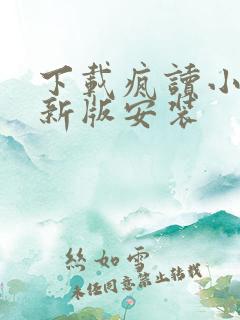 下載瘋讀小
新版安裝
絲如雪
未经同意禁止转载